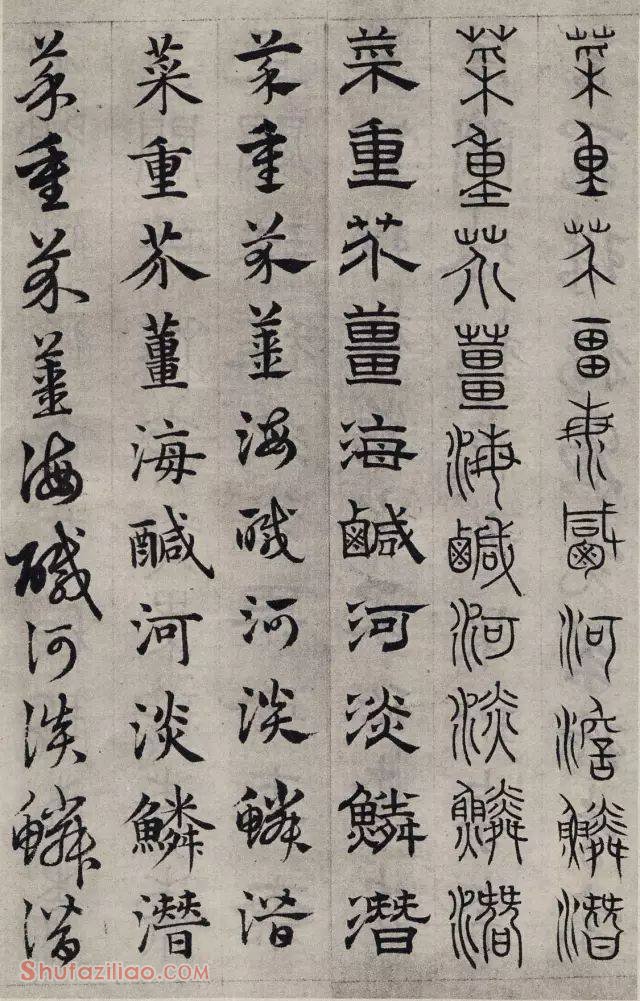 菜重芥薑海鹹河淡鱗潛
菜重芥薑海鹹河淡鱗潛
菜重芥薑海鹹河淡鱗潛
菜重芥薑海醎河淡鱗潛
菜重芥薑海醎河淡鱗潛
菜重芥薑海醎河淡鱗潛
Shufaziliao.com